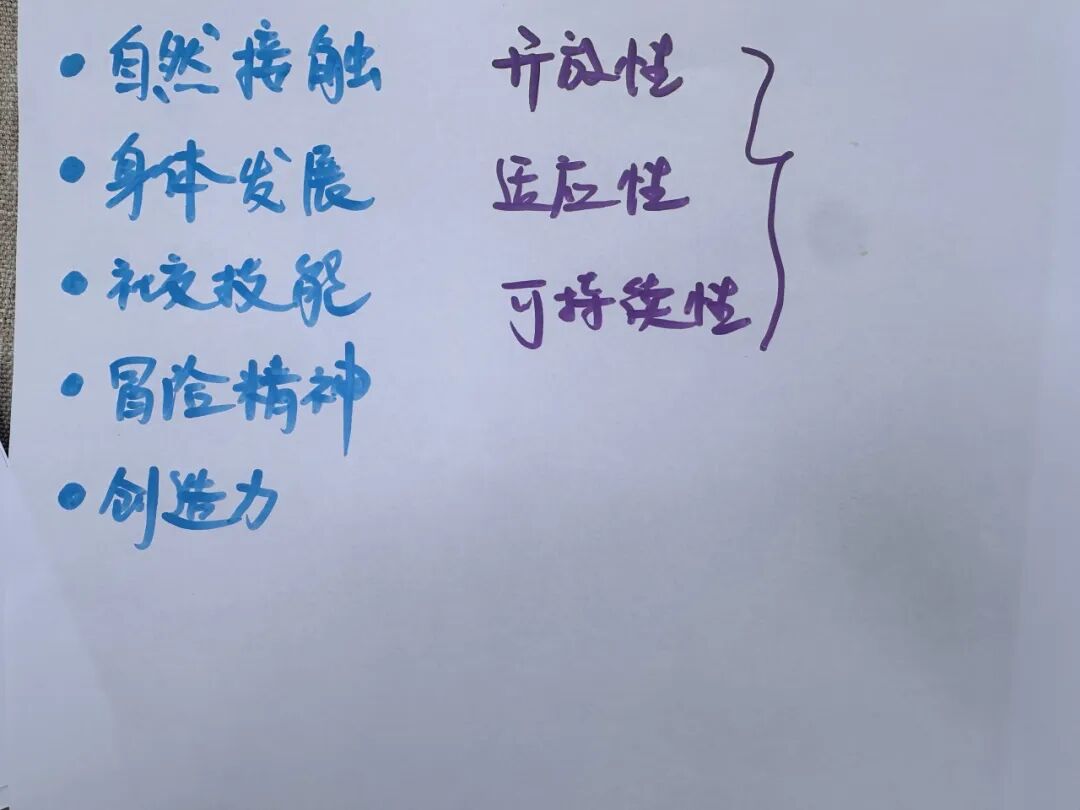 • 自然接触
• 身体发展
• 社交技能
• 冒险精神
• 创造力
开放性
适应性
可持续性